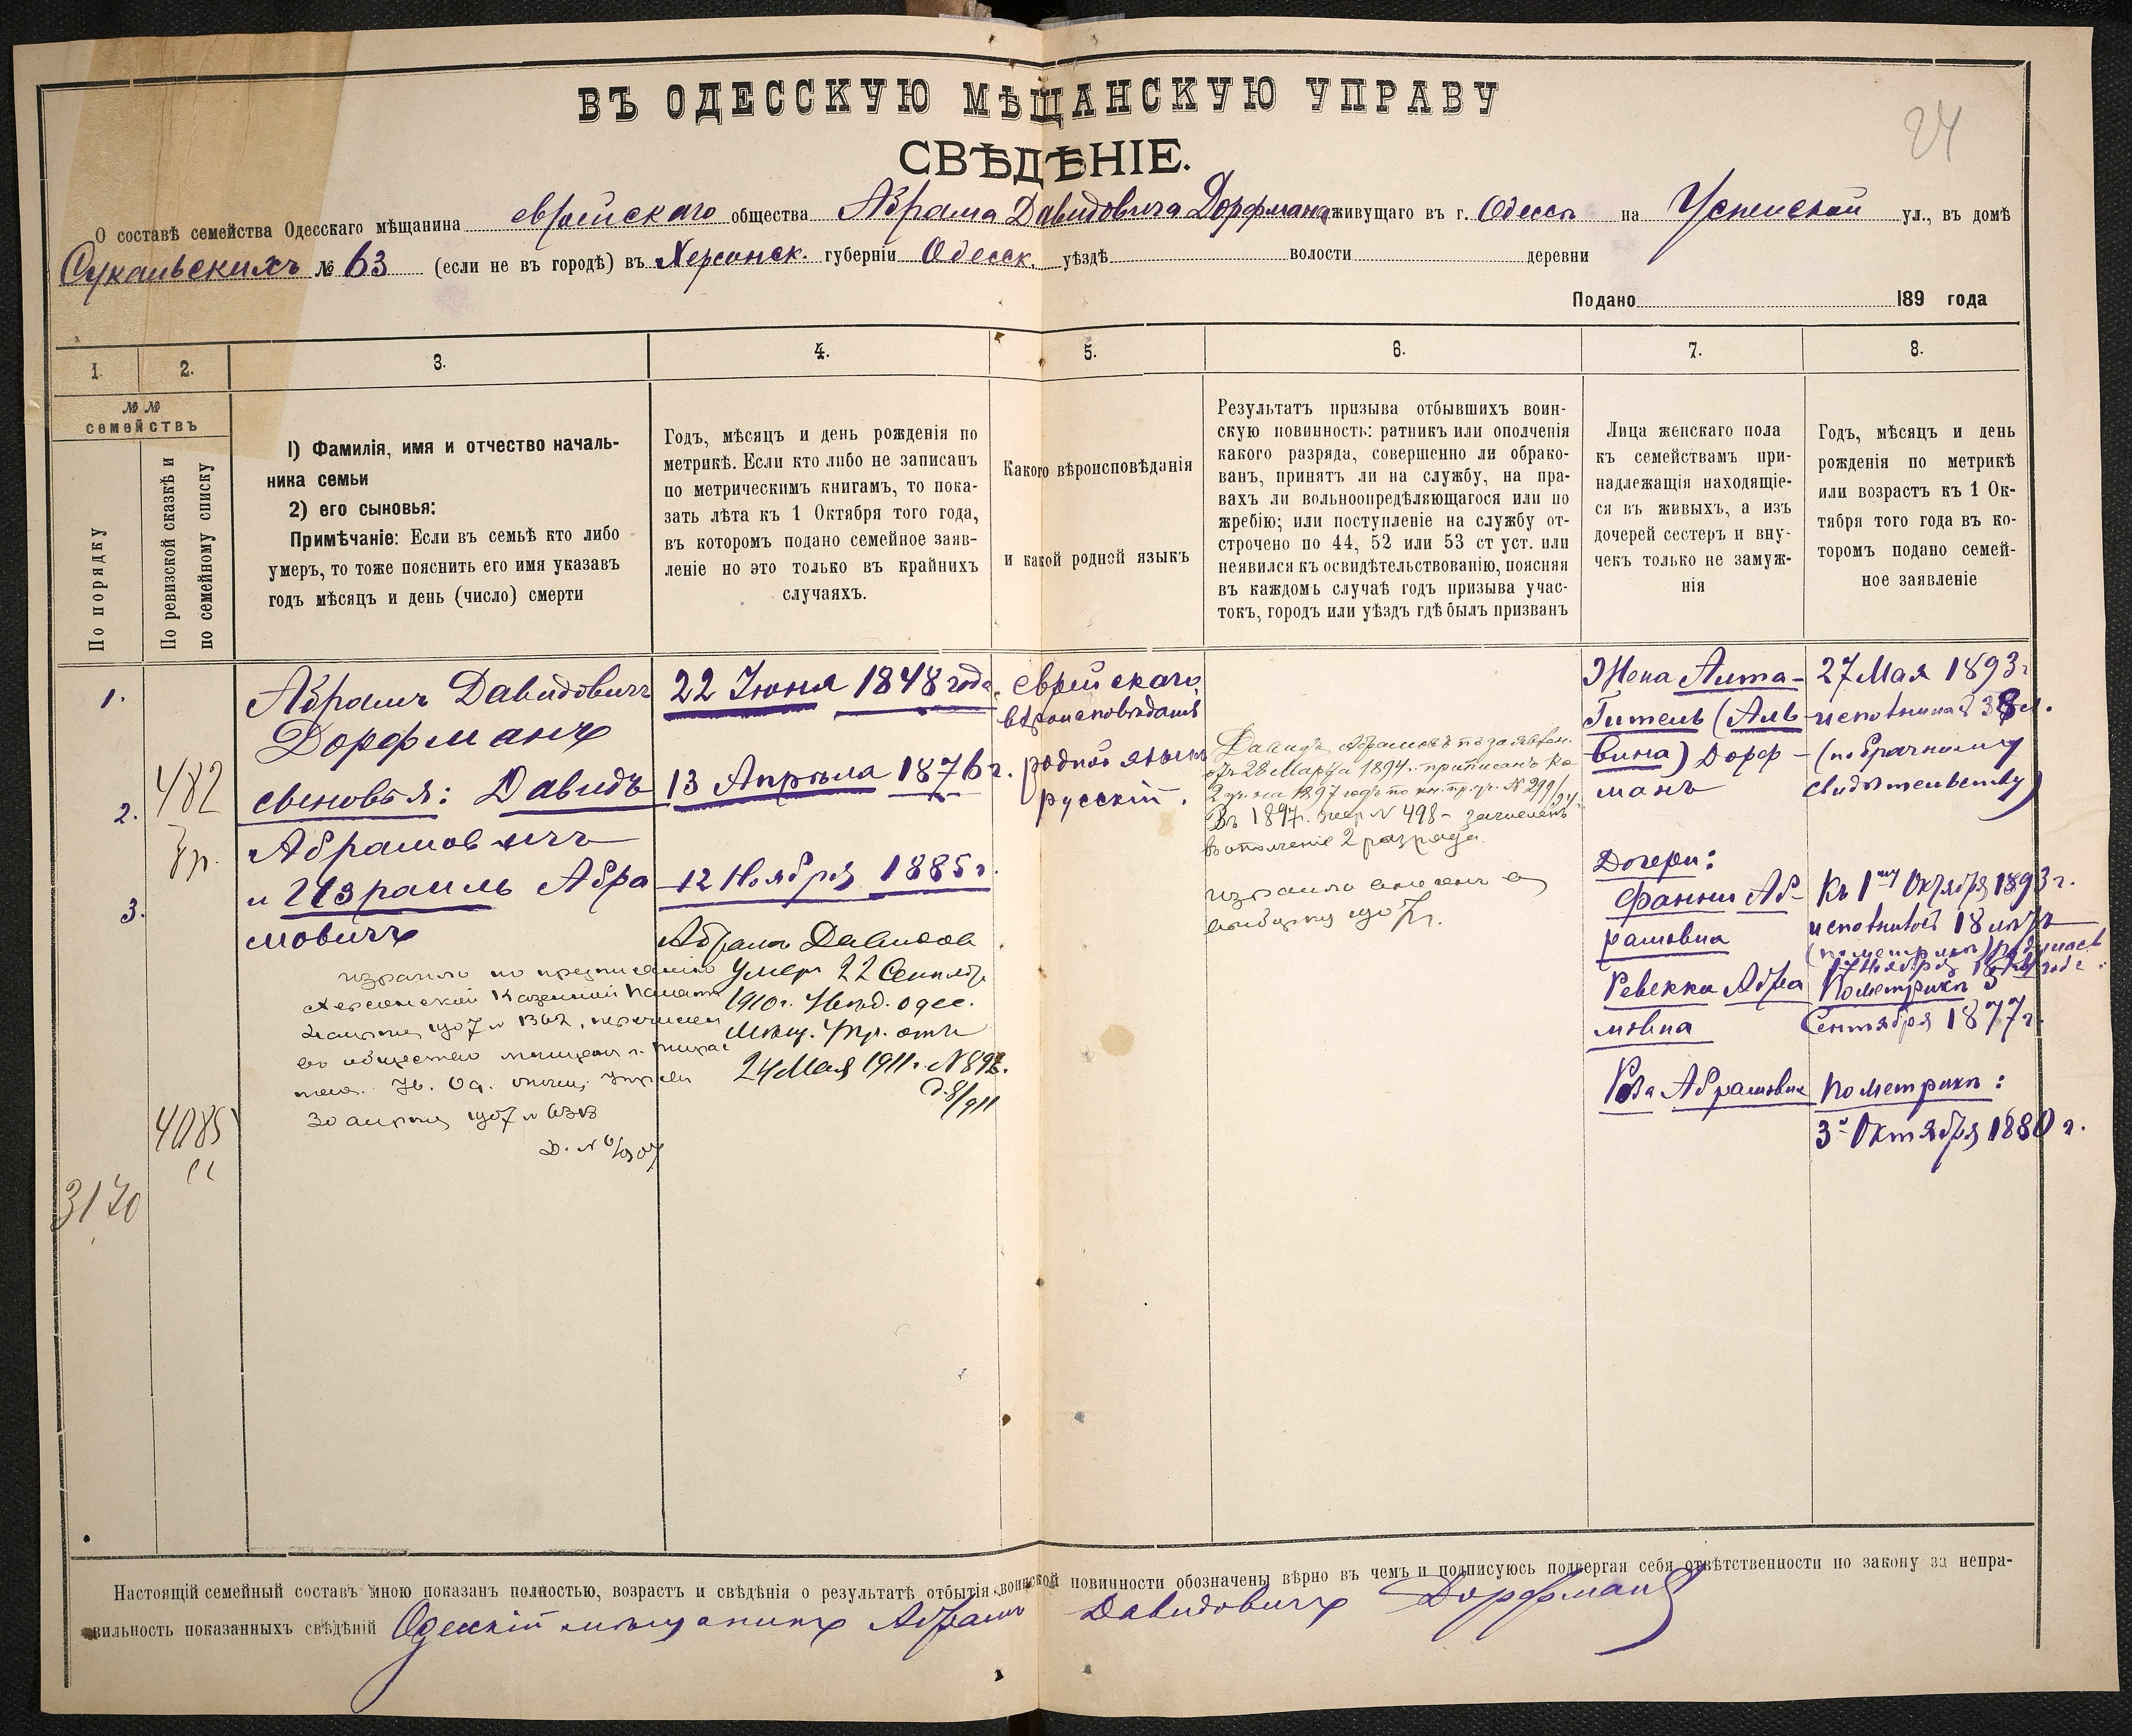 24
ВЪ ОДЕССКУЮ МѢЩАНСКУЮ УПРАВУ
СВѢДѢНІЕ.
О составѣ семейства Одесскаго мѣщанина еврейскаго общества Абрама Давидовича Дорфмана живущаго въ г. Одессѣ на Успенской ул., въ домѣ
Сукальскихъ № 63 (если не въ городѣ) въ Херсонск. губерніи Одесск. уѣздѣ волости деревни
Подано 189 года
1.
2.
3.
4.
5.
6.
7.
8.
№ №
семействъ
По порядку
По ревизской сказкѣ и
по семейному списку
1) Фамилія, имя и отчество началь-
ника семьи
2) его сыновья:
Примѣчаніе: Если въ семьѣ кто либо
умеръ, то тоже пояснить его имя указавъ
годъ мѣсяцъ и день (число) смерти
Годъ, мѣсяцъ и день рожденія по
метрикѣ. Если кто либо не записанъ
по метрическимъ книгамъ, то пока-
зать лѣта къ 1 Октября того года,
въ которомъ подано семейное заяв-
леніе но это только въ крайнихъ
случаяхъ.
Какого вѣроисповѣданія
и какой родной языкъ
Результатъ призыва отбывшихъ воин-
скую повинность: ратникъ или ополченія
какого разряда, совершенно ли обрако-
ванъ, принятъ ли на службу, на пра-
вахъ ли вольноопредѣляющагося или по
жребію; или поступленіе на службу от-
строчено по 44, 52 или 53 ст уст. или
неявился къ освидѣтельствованію, поясняя
въ каждомъ случаѣ годъ призыва учас-
токъ, городъ или уѣздъ гдѣ былъ призванъ
Лица женскаго пола
къ семействамъ при-
надлежащія находящіе-
ся въ живыхъ, а изъ
дочерей сестеръ и вну-
чекъ только не замуж-
нія
Годъ, мѣсяцъ и день
рожденія по метрикѣ
или возрастъ къ 1 Ок-
тября того года въ ко-
торомъ подано семей-
ное заявленіе
1.
Абрамъ Давидовичъ
Дорфманъ
2.
482
сыновья: Давидъ
Абрамовичъ
3.
и Израиль Абра
мовичъ
Израиль по предписанію
Херсонской Казенной Палаты
1907 № 1362, перечисленъ
въ общество мѣщанъ г.
30 1907 № 6313
Д. № 6/907
4085
3170
22 Іюня 1848 года
13 Апрѣла 1876 г.
12 Ноября 1885 г.
Абрамъ Давидов
умеръ 22 Сентябр
1910 г. Увѣд. одес.
мѣщ. Упр. отъ
24 Мая 1911 г. № 892.
д. 8/911
еврейскаго
вѣроисповѣданія
родной языкъ
русскій.
Давидъ Абрамовъ по заявлен.
отъ 28 Марта 1894 г. приписанъ ко
2 пр. на 1897 годъ по кн. пр. уч. № 299/94
Въ 1897 г. жер. № 498 – зачисленъ
въ ополченіе 2 разряда.
Израиль внесенъ въ
1907 г.
Жена Аита-
Гитель (Аль
вина) Дорф-
манъ
Дочери:
Фанни Аб-
рамовна
Ревекка Абра
мовна
Роза Абрамовна
27 Мая 1893 г.
исполнилось 38 л.
(по брачному
свидѣтельству)
Къ 1му Октября 1893 г.
исполнилось 18 лѣтъ
По метрикѣ 5
Сентября 1877 г.
По метрикѣ:
3го Октября 1880 г.
Настоящій семейный составъ мною показанъ полностью, возрастъ и свѣдѣнія о результатѣ отбытія воинской повинности обозначены вѣрно въ чемъ и подписуюсь подвергая себя отвѣтственности по закону за непра-
вильность показанныхъ свѣдѣній Одесскій мѣщанинъ Абрамъ Давидовичъ Дорфманъ